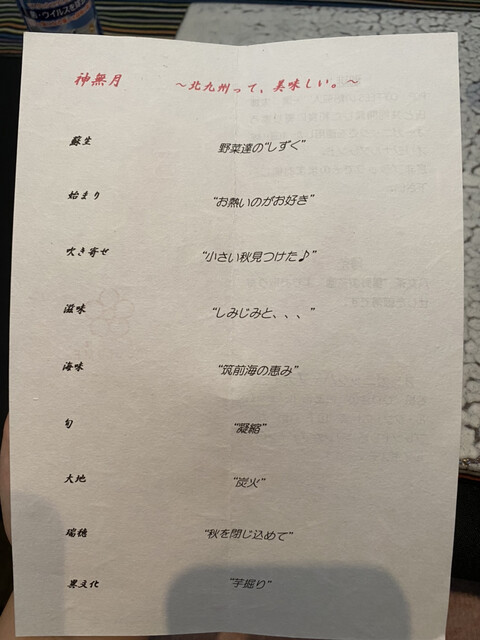 神無月 ～北九州って、美味しい。～
蘇生 野菜達の“しずく”
始まり “お熱いのがお好き”
吹き寄せ “小さい秋見つけた♪”
滋味 “しみじみと、、、”
海味 “筑前海の恵み”
旬 “凝縮”
大地 “炭火”
瑞穂 “秋を閉じ込めて”
異文化 “芋掘り”